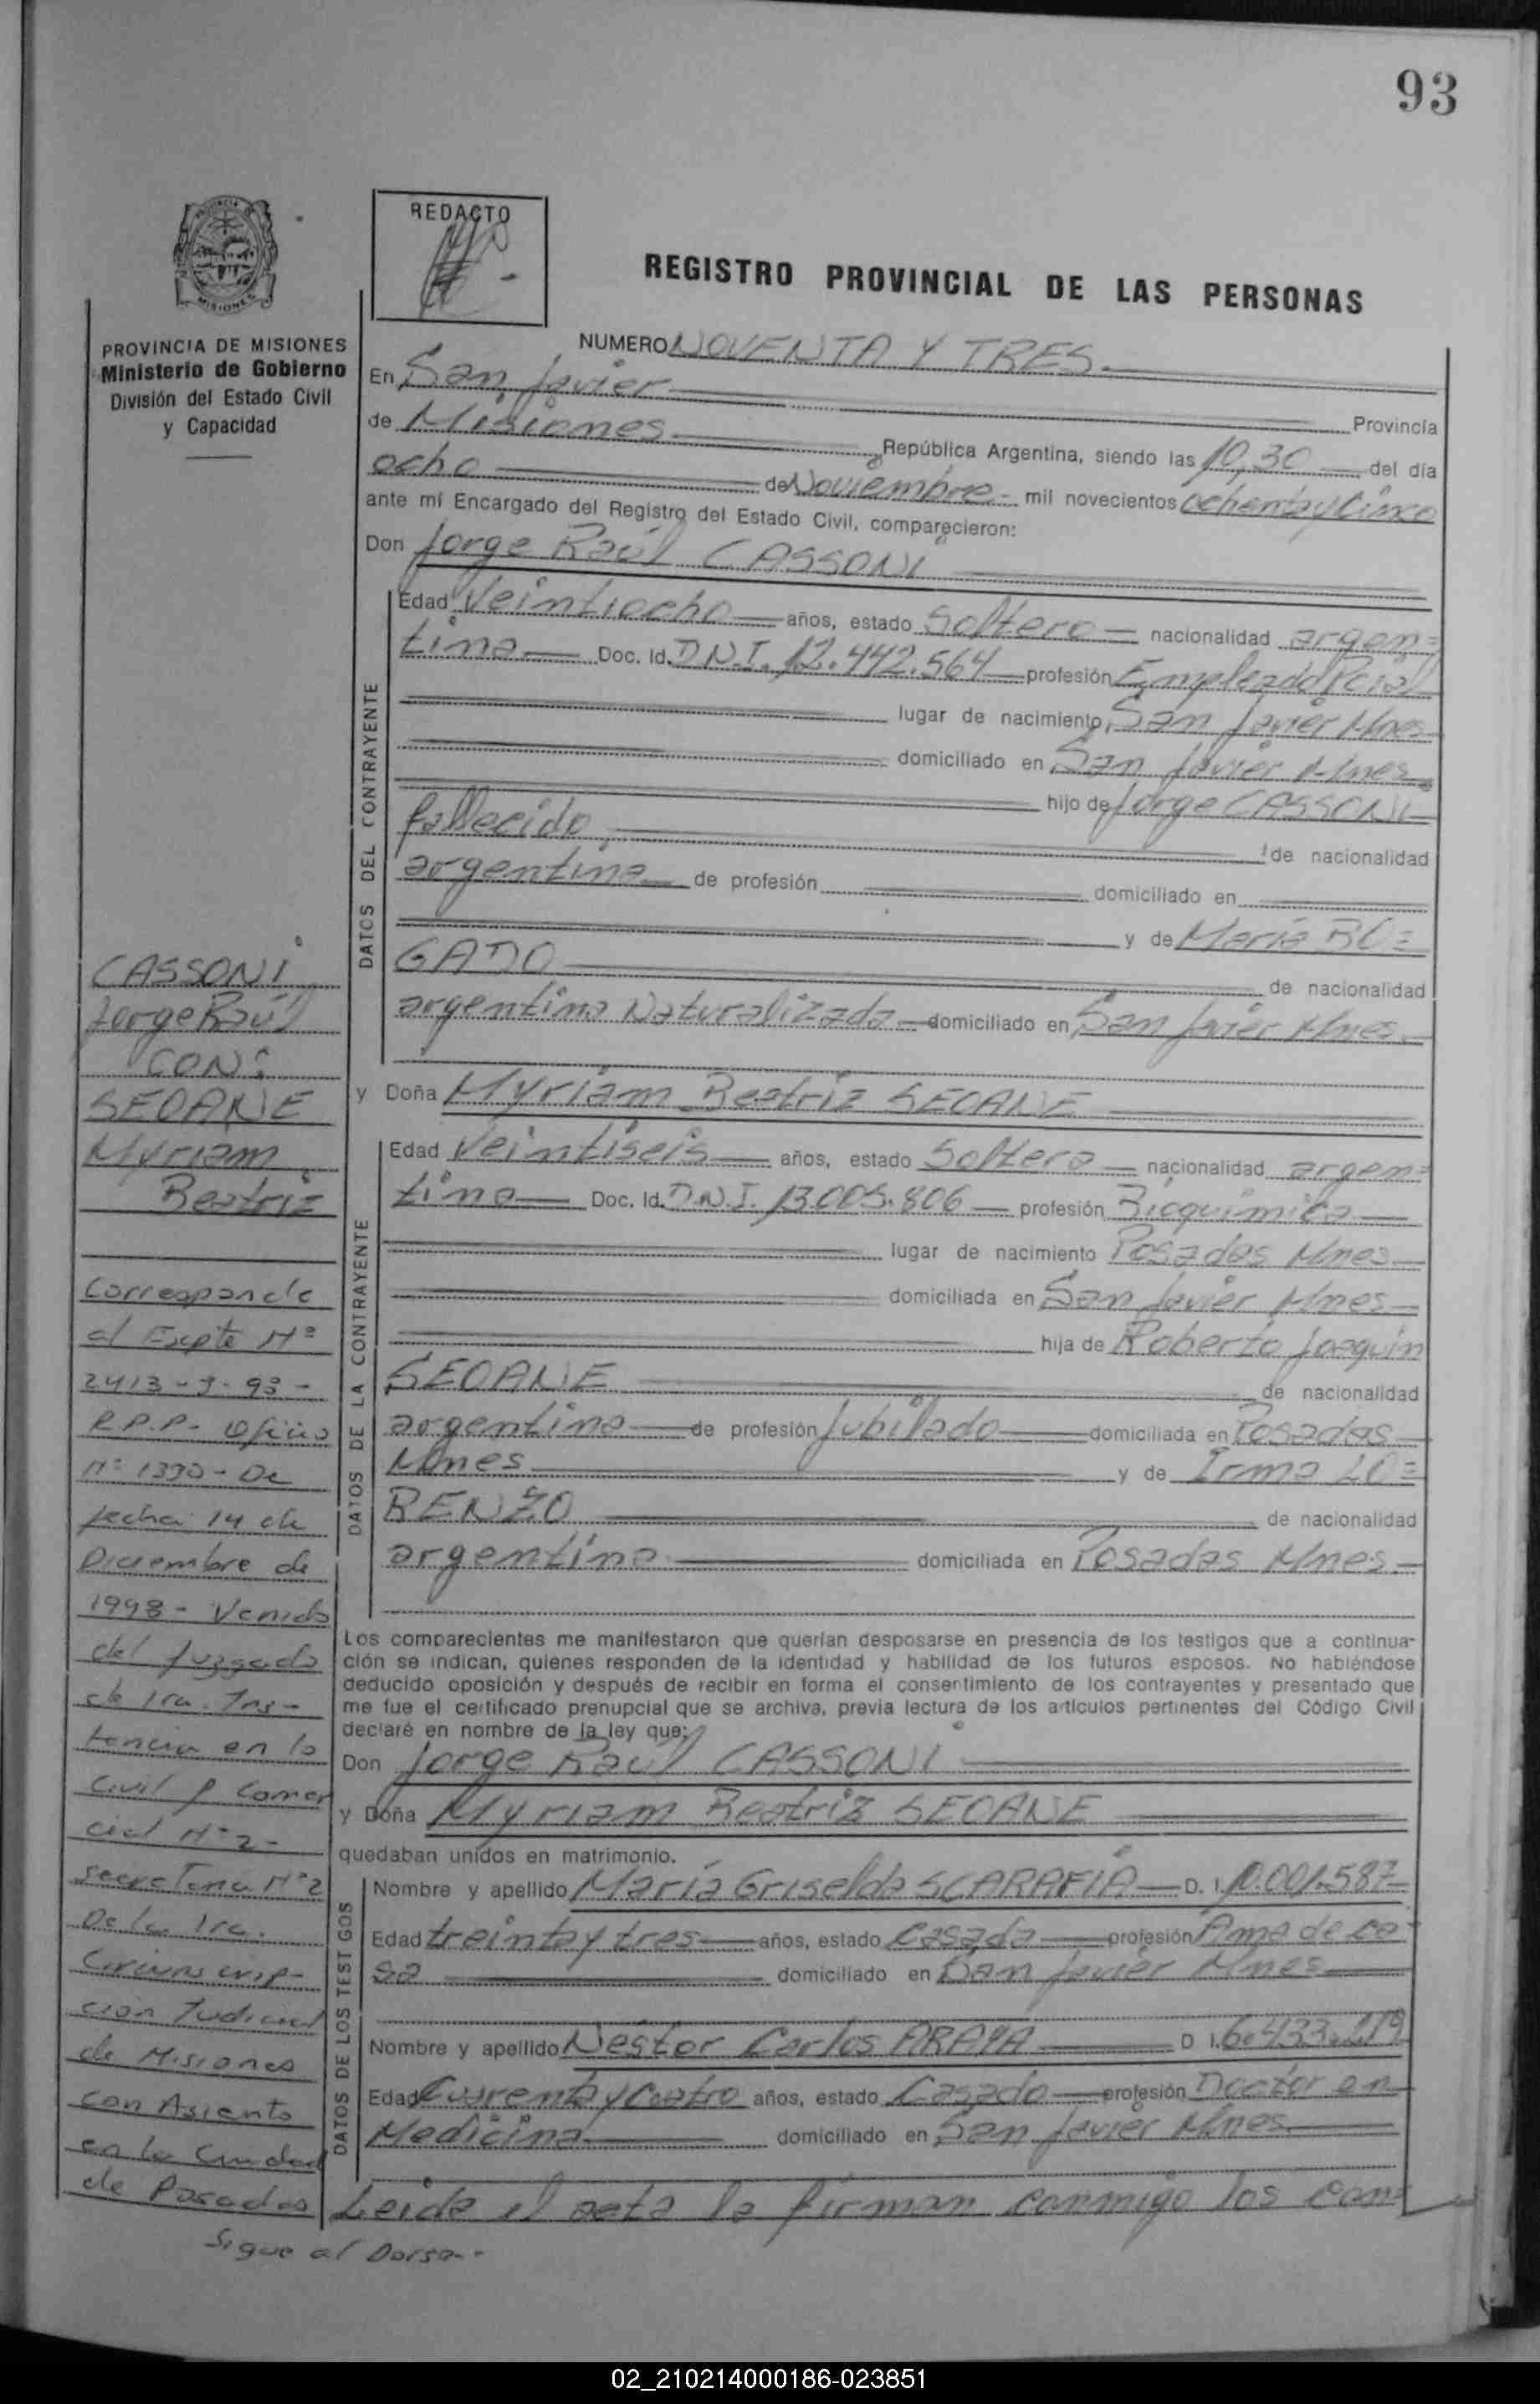 93
REDACTO
PROVINCIA DE MISIONES
Ministerio de Gobierno
División del Estado Civil
y Capacidad
REGISTRO PROVINCIAL DE LAS PERSONAS
NUMERO NOVENTA Y TRES.
En San Javier Provincia
de Misiones República Argentina, siendo las 10,30 del día
ocho de Noviembre mil novecientos ochenta y Cinco
ante mí Encargado del Registro del Estado Civil, comparecieron:
Don Jorge Raúl CASSONI
DATOS DEL CONTRAYENTE
Edad Veintiocho años, estado Soltero nacionalidad argen=
tina Doc. Id. D.N.I. 12.442.564 profesión Empleado Pcial
lugar de nacimiento San Javier Mnes
domiciliado en San Javier Mnes
hijo de Jorge CASSONI
fallecido de nacionalidad
argentina de profesión domiciliado en
y de María BO=
GADO de nacionalidad
argentina Naturalizada domiciliado en San Javier Mnes.
y Doña Myriam Beatriz SEOANE
DATOS DE LA CONTRAYENTE
Edad Veintiseis años, estado Soltera nacionalidad argen=
tina Doc. Id. D.N.I. 13.005.806 profesión Bioquímica
lugar de nacimiento Posadas Mnes
domiciliada en San Javier Mnes
hija de Roberto Joaquin
SEOANE de nacionalidad
argentina de profesión Jubilado domiciliada en Posadas
Mnes y de Irma LO=
RENZO de nacionalidad
argentina domiciliada en Posadas Mnes.
Los comparecientes me manifestaron que querían desposarse en presencia de los testigos que a continua-
ción se indican, quienes responden de la identidad y habilidad de los futuros esposos. No habiéndose
deducido oposición y después de recibir en forma el consertimiento de los contrayentes y presentado que
me fue el certificado prenupcial que se archiva, previa lectura de los artículos pertinentes del Código Civil
declaré en nombre de la ley que:
Don Jorge Raúl CASSONI
y Doña Myriam Beatriz SEOANE
quedaban unidos en matrimonio.
DATOS DE LOS TESTIGOS
Nombre y apellido María Griselda SCARAFIA D. I. 10.001.587
Edad treinta y tres años, estado Casada profesión Ama de ca
sa domiciliado en San Javier Mnes
Nombre y apellido Néstor Carlos ARAYA D I. 6.433.219
Edad Cuarenta y Cuatro años, estado Casado profesión Doctor en
Medicina domiciliado en San Javier Mnes
Leida el acta la firman conmigo los con=
CASSONI
Jorge Raúl
CON:
SEOANE
Myriam
Beatriz
Corresponde
al Expte Nº
2413-9-98-
R.P.P. Oficio
Nº 1390 - De
fecha 14 de
Diciembre de
1998 - Venido
del Juzgado
de 1ra. Ins-
tancia en lo
Civil y Comer
cial Nº 2-
Secretaria Nº 2
De la 1ra.
Circunscrip-
ción Judicial
de Misiones
con Asiento
en la Ciudad
de Posadas
Sigue al Dorso--
02_210214000186-023851